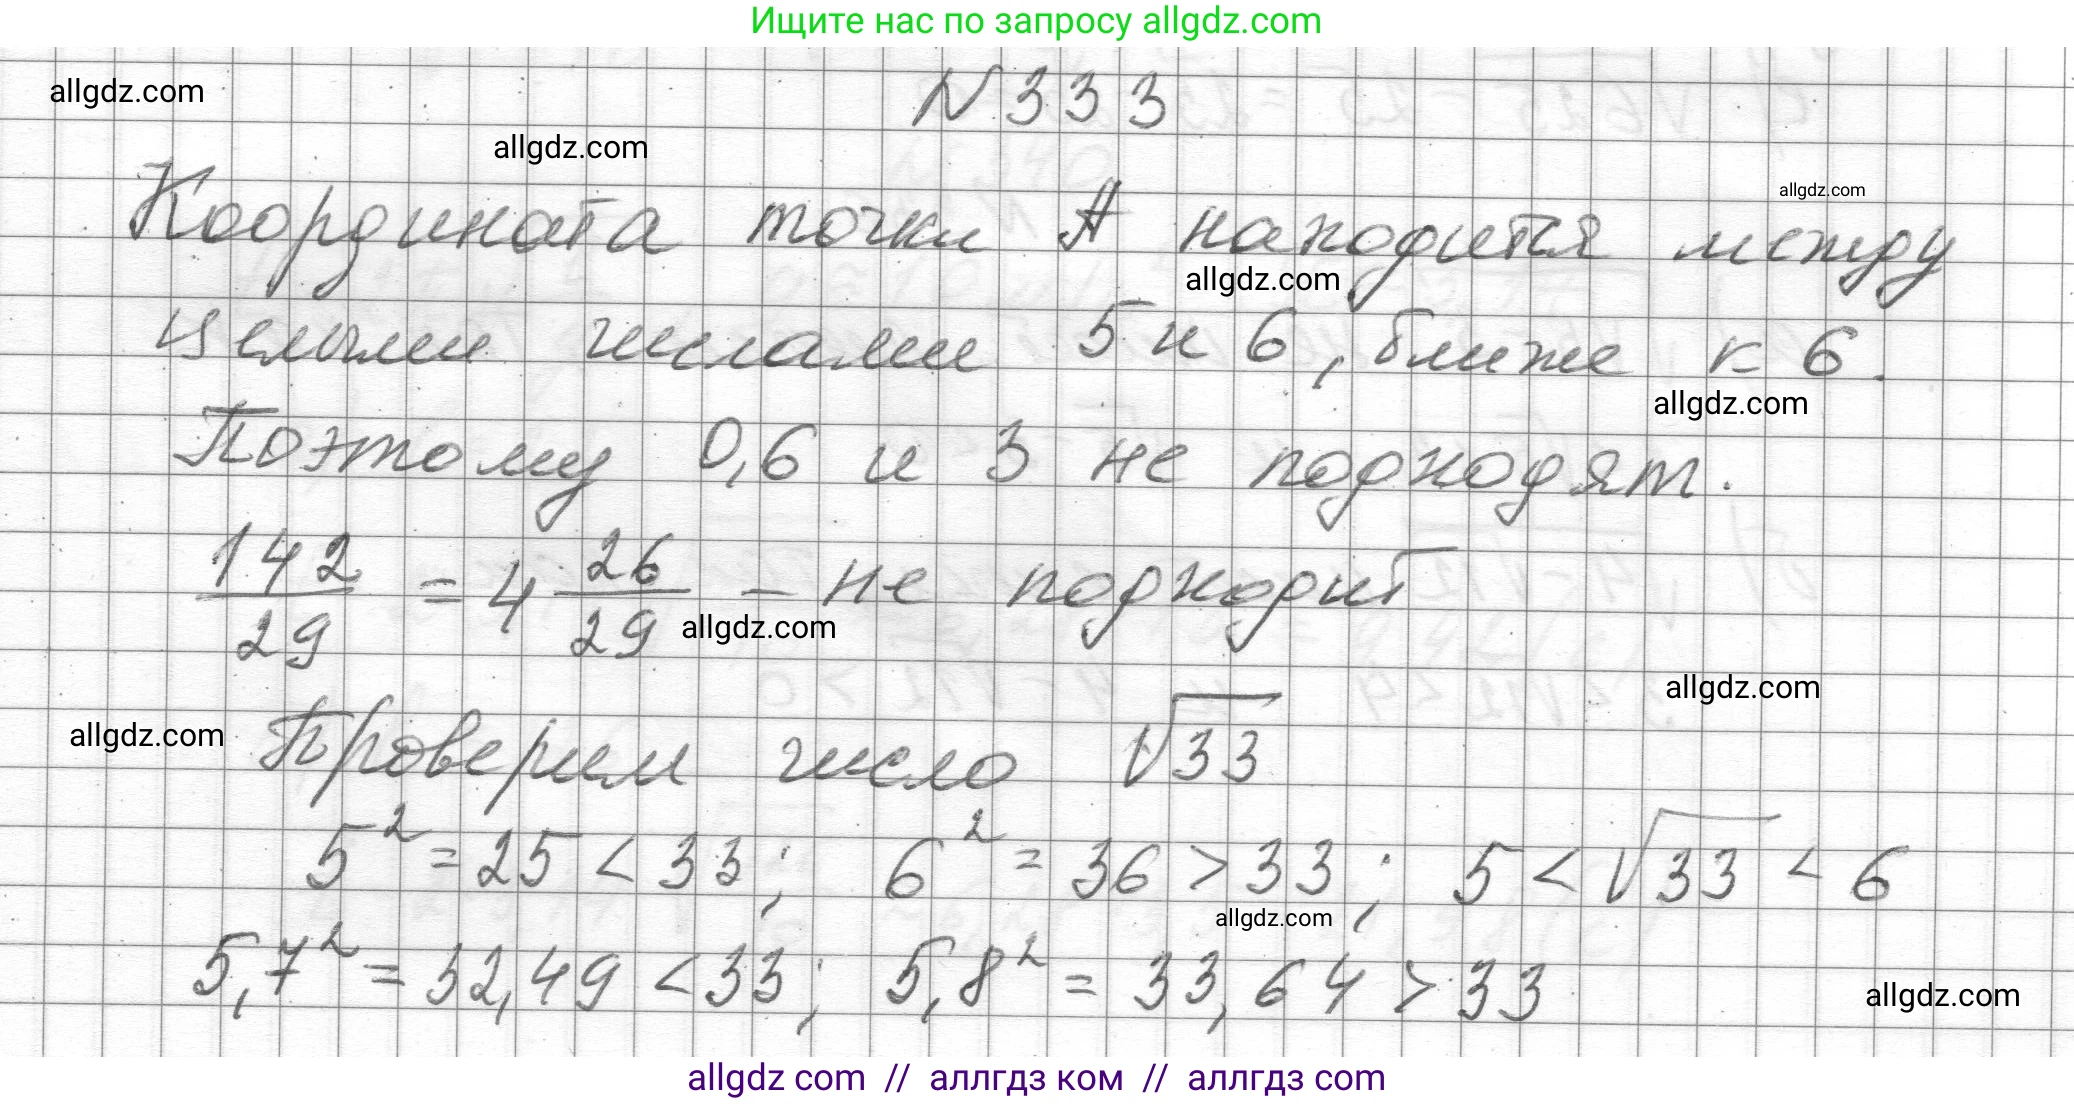 Ищите нас по запросу allgdz.com
allgdz.com
N 333
allgdz.com
allgdz.com
Координата точки А находится между
allgdz.com
целыми числами 5 и 6, ближе к 6.
allgdz.com
Поэтому 0,6 и 3 не подходят.
142/29 = 4 26/29 - не подходит
allgdz.com
allgdz.com
allgdz.com
Проверим число √33
5² = 25 < 33; 6² = 36 > 33; 5 < √33 < 6
allgdz.com
5,7² = 32,49 < 33; 5,8² = 33,64 > 33
allgdz.com
allgdz com // аллгдз ком // аллгдз com